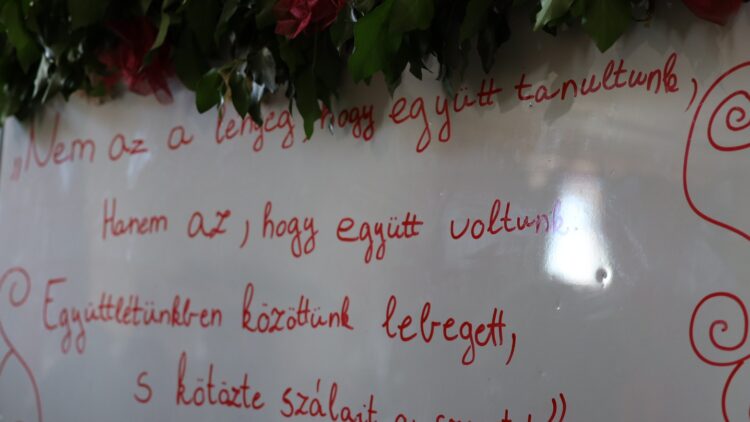 „Nem az a lényeg, hogy együtt tanultunk,
Hanem az, hogy együtt voltunk.
Együttlétünkben közöttünk lebegett,
s kötözte szálait a